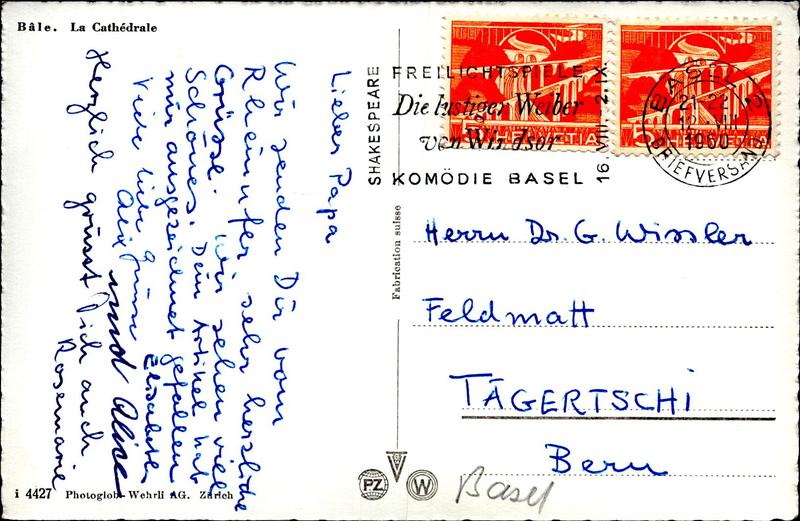 Bâle. La Cathédrale
Lieber Papa
Wir senden Dir vom
Rheinufer sehr herzliche
Grüsse. Wir sehen viel
Schönes. Dein Artikel hat
mir ausgezeichnet gefallen
Viele liebe Grüsse Elisabeth
Alix und Alice
Herzlich grüsst Dich auch
Rosemarie
SHAKESPEARE
FREILICHTSPIELE
Die lustigen Weiber
von Windsor
KOMÖDIE BASEL
16. VIII - 2. IX.
HELVETIA
HELVETIA
BASEL 2
21-22
12. VIII
1960
BRIEFVERSAND
Herrn Dr. G. Wissler
Feldmatt
TÄGERTSCHI
Bern
Fabrication suisse
PZ
W
Basel
i 4427 Photoglob-Wehrli AG. Zürich